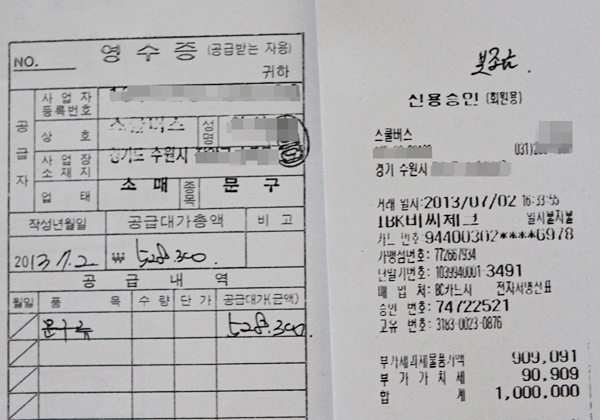 NO.
영 수 증 (공급받는 자용)
귀하
공급자
사업자
등록번호
상 호 스쿨버스 성명
사업장
소재지 경기도 수원시
업 태 소 매 종목 문 구
작성년월일 공급대가총액 비 고
2013.7.2 ₩ 528.300.
공 급 내 역
월일 품 목 수 량 단 가 공급대가(금액)
문구류 528.300
신용승인 (회원용)
스쿨버스
031)2
경기 수원시
거래 일시:2013/07/02 16:33:55
IBK비씨체크 일시불지불
카드 번호:94400302****6978
가맹점번호: 772667934
단말기번호:1039940001-3491
매 입 처: BC카드사 전자서명전표
승인 번호: 74722521
고유 번호: 3183-0023-0876
부가세과세물품가액 909,091
부 가 가 치 세 90,909
합 계 1,000,000